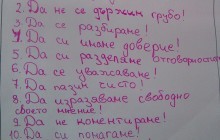 2. Да не се държим грубо!
3. Да се разбираме!
4. Да си имаме доверие!
5. Да си разделяме отговорностите
6. Да се уважаваме!
7. Да пазим чисто!
8. Да изразяваме свободно
своето мнение!
9. Да не коментираме!
10. Да си помагаме!